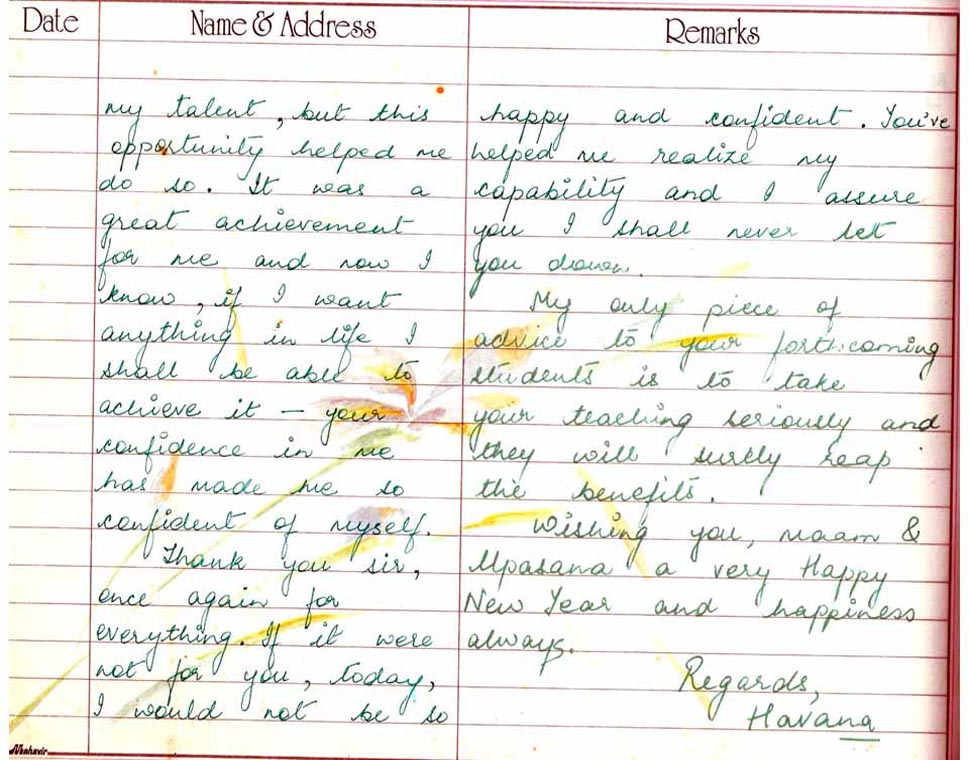 Date
Name & Address
Remarks
my talent, but this
opportunity helped me
do so. It was a
great achievement
for me and now I
know, if I want
anything in life I
shall be able to
achieve it – your
confidence in me
has made me so
confident of myself.
Thank you sir,
once again for
everything. If it were
not for you, today,
I would not be so
happy and confident. You've
helped me realize my
capability and I assure
you I shall never let
you down.
My only piece of
advice to your forthcoming
students is to take
your teaching seriously and
they will surely reap
the benefits.
Wishing you, maam &
Upasana a very Happy
New Year and happiness
always.
Regards,
Havana
Mahavir